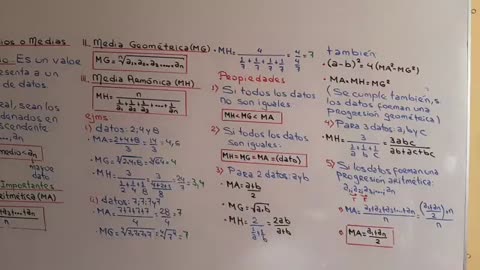 ios o Medias
Es un valor
esenta a un
de datos.
eal, sean los
denados en
scendente
..., an
medio<an
mayor
dato
Importantes
aritmética(MA)
+a2+...+an
n
II. Media Geométrica(MG)
MG=ⁿ√a1.a2.a3.....an
III. Media Armónica(MH)
MH= n / (1/a1+1/a2+1/a3+...+1/an)
ejms
i) datos: 2;4 y 8
•MA=(2+4+8)/3=14/3=4,6
•MG=³√2.4.8=³√64=4
•MH=3/(1/2+1/4+1/8)=3/((4+2+1)/8)=24/7=3,4
ii) datos:7;7;7y7
•MA=(7+7+7+7)/4=28/4=7
MG=⁴√7.7.7.7=⁴√7⁴=7
•MH=4/(1/7+1/7+1/7+1/7)=4/(4/7)=7
Propiedades
1) Si todos los datos
no son iguales
MH<MG<MA
2) Si todos los datos
son iguales:
MH=MG=MA=(dato)
3) Para 2 datos: a y b
•MA=(a+b)/2
•MG=√a.b
•MH=2/(1/a+1/b)=2ab/(a+b)
también
•(a-b)²=4(MA²-MG²)
•MA.MH=MG²
(Se cumple también, si
los datos forman una
progresión geométrica)
4) Para 3 datos: a,b y c
•MH=3/(1/a+1/b+1/c)=3abc/(ab+ac+bc)
5) Si los datos forman una
progresión aritmética:
a1,a2,...,an
•MA=(a1+a2+a3+...+an)/n=((a1+an)/2).n/n
•MA=(a1+an)/2